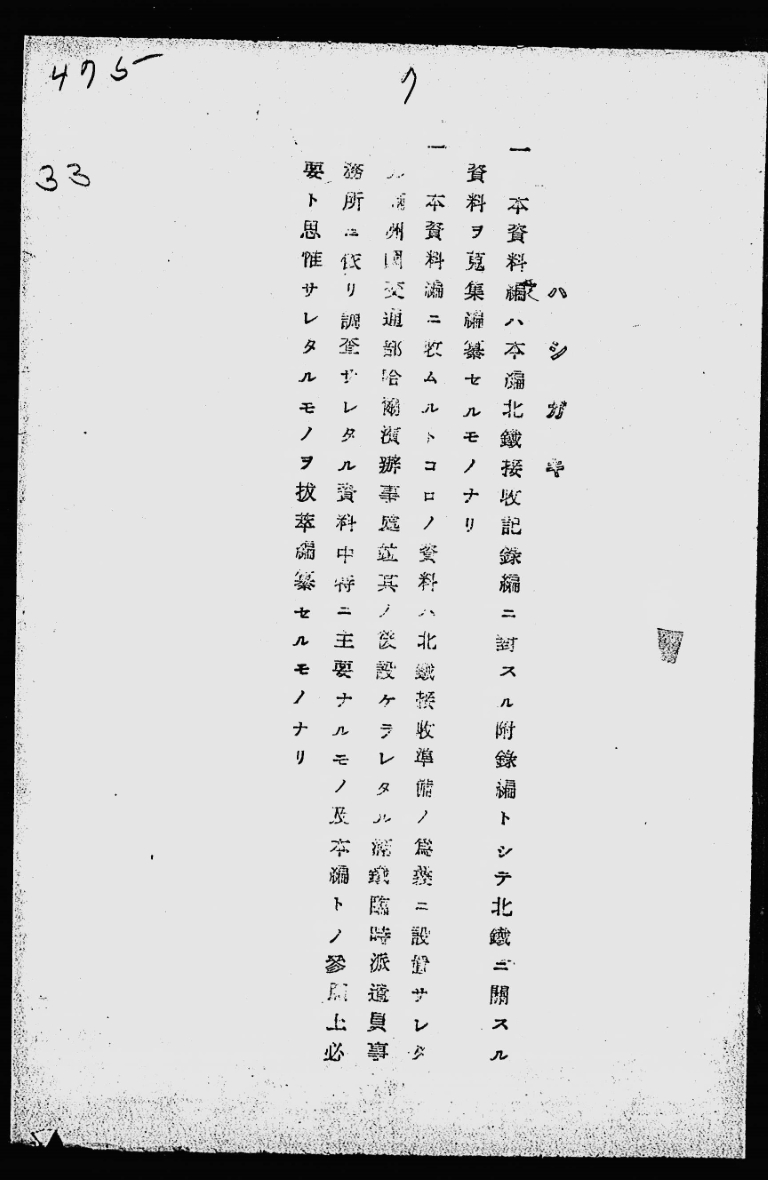 475
7
33
ハシガキ
一 本資料編ハ本編北鐵接收記錄編ニ對スル附錄編トシテ北鐵ニ關スル
資料ヲ蒐集編纂セルモノナリ
一 本資料編ニ收ムルトコロノ資料ハ北鐵接收準備ノ爲曩ニ設置サレタ
ル滿州國交通部哈爾濱辦事處竝其ノ後設ケラレタル滿鐵臨時派遣員事
務所ニ依リ調査サレタル資料中特ニ主要ナルモノ及本編トノ參照上必
要ト思惟サレタルモノヲ拔萃編纂セルモノナリ